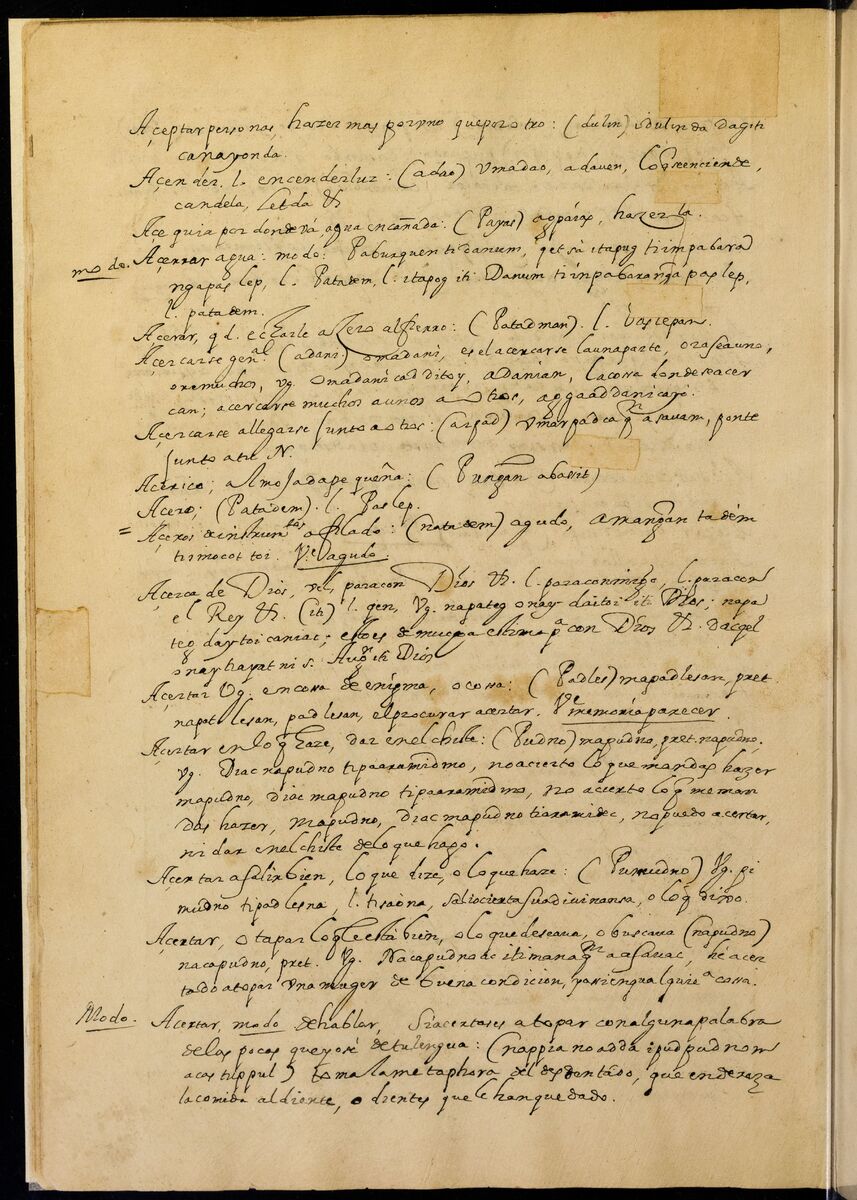 Açeptar personas, hazer mas por vno que por otro: (dulin) idulin da dagiti
canayonda.
Açender. l. encender luz: (adao) vmadao, adaven, lo q̃ se enciende,
candela, leña &
Açequia por donde vá agua encañada: (Payas) agpáyas, hazerla.
mo do. Açerrar agua: modo: Paburquen ti danum, q̃ et sa itapug ti impabara
ngapas lep, l. Patadem, l. itapog iti Danum ti inpabaranga pas lep,
l. patadem.
Acerar, q d. echarle azero al fierro: (Patadman). l. baslepan.
Açercarse gen.al (adani) omadani, es el acercarse la una parte, ora sea uno,
ore muchos, vg. omadani cad ditoy, adanian, la cossa donde se acer
can; acercarse muchos a unos a otros, aggaaddani cayo.
Açercarse allegarse junto a otros: (arpad) vmarpad ca q̃ asavam, ponte
junto a tu N.
Acerico; almohada pequeña: (Pungan a bassit)
Acero; (Patadem). l. Paslep.
= Açeros de instrumtos afilado: (natadem) agudo, amangan tadém
ti imocot toi. Ve. agudo.
Acerca de Dios, vel, para con Dios &. l. para conmigo, l. para con
el Rey & (iti) l. gen, Vg. napateg onay daitoi iti Dios; napa
teg daytoi caniac; esto es de mucha estima pa con Dios &. dacqel
onay hayat ni S. Augn iti Dios
Açertar Vg. en cossa de enigma, o cossa: (Padles) mapadlesan, pret.
napatlesan, padlesan, el procurar acertar. Ve memoria parecer.
Açertar en lo q̃ haze, dar en el chiste: (Pudno) mapudno, pret. napudno.
Vg. Diac napudno tipaaramidmo, no acierto lo que mandas hazer
mapudno, diac mapudno tipaaramidmo, no acierto lo q̃ me man
das hazer, mapudno, diac mapudno tiaramidec, no puedo acertar,
ni dar en el chiste de lo que hago.
Açertar a salir bien, lo que dize, o lo que haze: (Pumudno) Vg. pi
mudno tipadlesna, l. tisaona, salio cierta su adivinansa, o lo q̃ dixo.
Açertar, o tapar lo q̃ le está bien, o lo que deseava, o buscava (napudno)
nacapudno, pret. Vg. Nacapudnoac iti mana q̃ a asavac, hé acer
tado a topar vna muger de buena condicion, y assi en qualquiera cossa.
Modo. Acertar, modo de hablar, si acertases a topar con alguna palabra
de las pocas que yo sé de tu lengua: (nappia no adda ipudpudnom
acas tuppul) toma la metaphora del desdentado, que endereza
la comida al diente, o dientes que le han quedado.